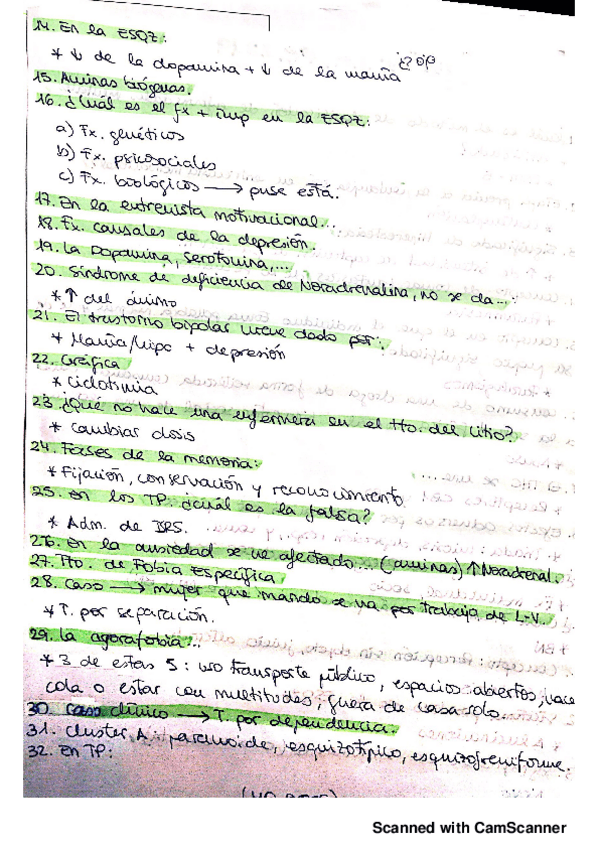 14. En la ESQZ:
* ↓ de la dopamina + ↓ de la manía
15. Aminas biógenas.
16. ¿Cuál es el fx + imp en la ESQZ:
a) Fx. genéticos
b) Fx. psicosociales
c) Fx. biológicos → puse está.
17. En la entrevista motivacional...
18. Fx. causales de la depresión.
19. La Dopamina, Serotonina,...
20. Síndrome de deficiencia de Noradrenalina, no se da...:
* ↑ del ánimo
21. El trastorno bipolar viene dado por:
* Manía/hipo + depresión
22. Gráfica
* Ciclotimia
23. ¿Qué no hace una enfermera en el tto. del Litio?
* Cambiar dosis
24. Fases de la memoria:
* Fijación, conservación y reconocimiento
25. En los TP: ¿cuál es la falsa?
* Adm. de
26. En la ansiedad se ve afectado... (aminas) ↑ Noradrenal.
27. Tto. de Fobia Específica
28. Caso → mujer que marido se va por trabajo de L-V.
* T. por separación.
29. La agorafobia:...
* 3 de estas 5: uso transporte público, espacios abiertos, hace
cola o estar con multitudes, fuera de casa solo.
30. Caso clínico → T. por dependencia.
31. Cluster A: paranoide, esquizotípico, esquizofreniforme.
32. En TP:
Scanned with CamScanner